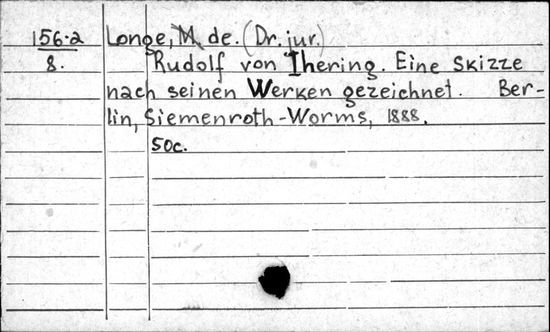 156-2 Longe, M. de. (Dr. jur.)
8. Rudolf von Ihering. Eine Skizze
nach seinen Werken gezeichnet. Ber-
lin, Siemenroth-Worms, 1888.
50c.